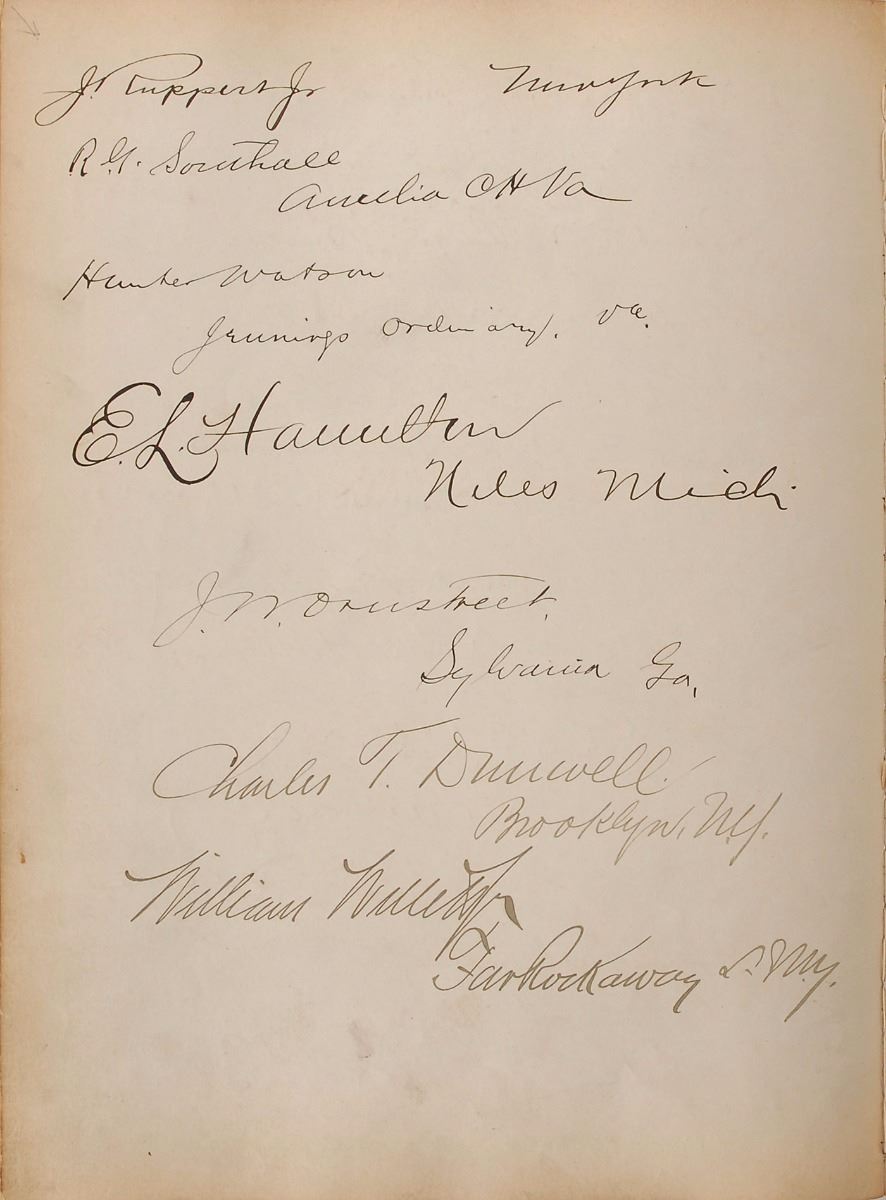 J. Ruppert Jr New York
R. G. Southall
Amelia C H Va
Hunter Watson
Jennings Ordinary, Va.
E. L. Hamilton
Niles Mich
J. W. Overstreet,
Sylvania Ga,
Charles T. Dunwell.
Brooklyn, N.Y.
William Willett Jr
Far Rockaway N.Y.